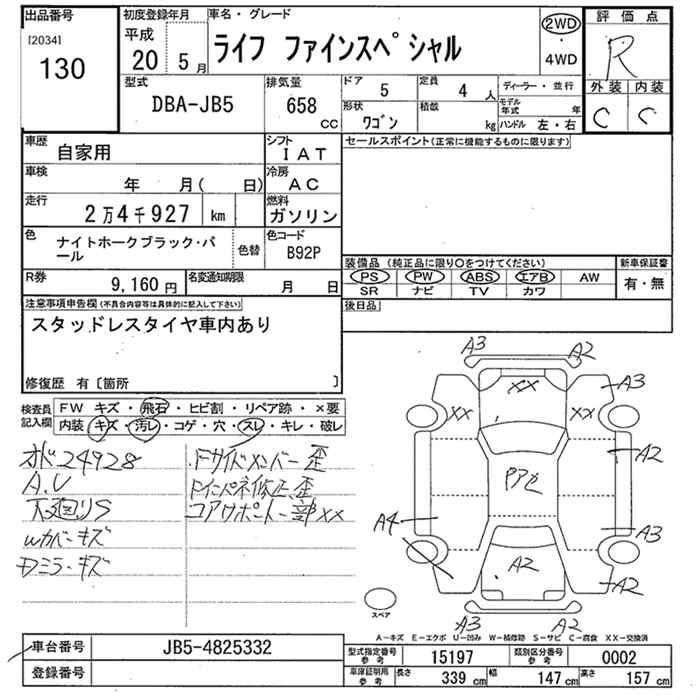 出品番号
[2034]
130
初度登録年月
平成
20 5月
車名・グレード
ライフ ファインスペシャル
2WD
・
4WD
評価点
R
外装 内装
C C
型式
DBA-JB5
排気量
658
cc
ドア
5
定員
4 人
形状
ワゴン
積載
kg
ディーラー・並行
モデル年式 年
ハンドル 左・右
車歴
自家用
シフト
IAT
車検
年 月( 日)
冷房
AC
走行
2万4千927 km
燃料
ガソリン
色
ナイトホークブラック・パール
色替
色コード
B92P
R券
9,160 円
名変通知期限
月 日
セールスポイント(正常に機能するものに限ります)
装備品 (純正品に限り○をつけてください)
PS PW ABS エアB AW
SR ナビ TV カワ
新車保証書
有・無
後日品
注意事項申告欄(不具合内容等は具体的に記入して下さい)
スタッドレスタイヤ車内あり
修復歴 有〔箇所 〕
検査員記入欄
FW キズ・飛石・ヒビ割・リペア跡・×要
内装 キズ・汚レ・コゲ・穴・スレ・キレ・破レ
オド24928
A.V
下廻りS
Wカバーキズ
Dミラーキズ
Fサイドメンバー歪
Fインパネ修正、歪
コアサポート一部XX
A3 A2
XX
A3
XX XX
A2
A4
A3
A2
A2
A3 A2
スペア
A-キズ E-エクボ U-凹み W-補修跡 S-サビ C-腐食 XX-交換済
車台番号
JB5-4825332
登録番号
型式指定番号
参考
15197
類別区分番号
参考
0002
車庫証明用
参考
長さ
339 cm
幅
147 cm
高さ
157 cm